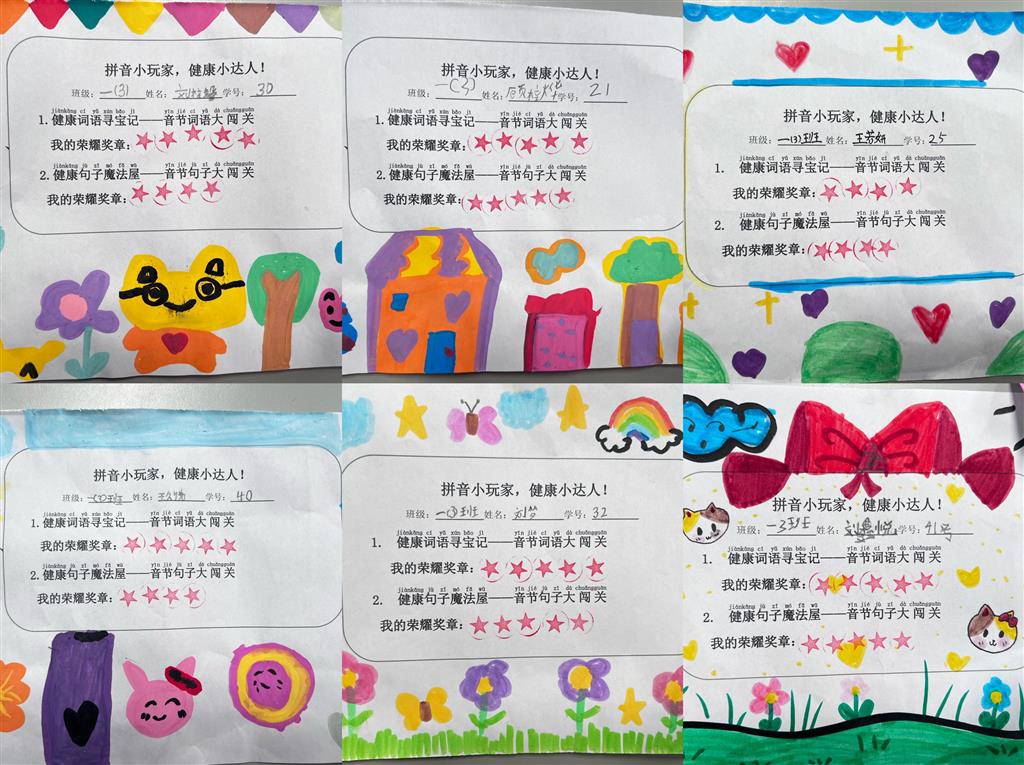 拼音小玩家，健康小达人！
班级：一(3) 姓名： 学号：30
jiànkāng cí yǔ xún bǎo jì yīn jié cí yǔ dà chuǎngguān
1.健康词语寻宝记——音节词语大闯关
我的荣耀奖章：
jiànkāng jù zǐ mó fǎ wū yīn jié jù zǐ dà chuǎngguān
2.健康句子魔法屋——音节句子大闯关
我的荣耀奖章：
拼音小玩家，健康小达人！
班级：一(3) 姓名： 学号：21
jiànkāng cí yǔ xún bǎo jì yīn jié cí yǔ dà chuǎngguān
1.健康词语寻宝记——音节词语大闯关
我的荣耀奖章：
jiànkāng jù zǐ mó fǎ wū yīn jié jù zǐ dà chuǎngguān
2.健康句子魔法屋——音节句子大闯关
我的荣耀奖章：
拼音小玩家，健康小达人！
班级：一(3)班 姓名：王苏妍 学号：25
jiànkāng cí yǔ xún bǎo jì yīn jié cí yǔ dà chuǎngguān
1. 健康词语寻宝记——音节词语大闯关
我的荣耀奖章：
jiànkāng jù zǐ mó fǎ wū yīn jié jù zǐ dà chuǎngguān
2. 健康句子魔法屋——音节句子大闯关
我的荣耀奖章：
拼音小玩家，健康小达人！
班级：一(3)班 姓名： 学号：40
jiànkāng cí yǔ xún bǎo jì yīn jié cí yǔ dà chuǎngguān
1.健康词语寻宝记——音节词语大闯关
我的荣耀奖章：
jiànkāng jù zǐ mó fǎ wū yīn jié jù zǐ dà chuǎngguān
2.健康句子魔法屋——音节句子大闯关
我的荣耀奖章：
拼音小玩家，健康小达人！
班级：一(3)班 姓名： 学号：32
jiànkāng cí yǔ xún bǎo jì yīn jié cí yǔ dà chuǎngguān
1. 健康词语寻宝记——音节词语大闯关
我的荣耀奖章：
jiànkāng jù zǐ mó fǎ wū yīn jié jù zǐ dà chuǎngguān
2. 健康句子魔法屋——音节句子大闯关
我的荣耀奖章：
拼音小玩家，健康小达人！
班级：一3班 姓名： 学号：
jiànkāng cí yǔ xún bǎo jì yīn jié cí yǔ dà chuǎngguān
1. 健康词语寻宝记——音节词语大闯关
我的荣耀奖章：
jiànkāng jù zǐ mó fǎ wū yīn jié jù zǐ dà chuǎngguān
2. 健康句子魔法屋——音节句子大闯关
我的荣耀奖章：